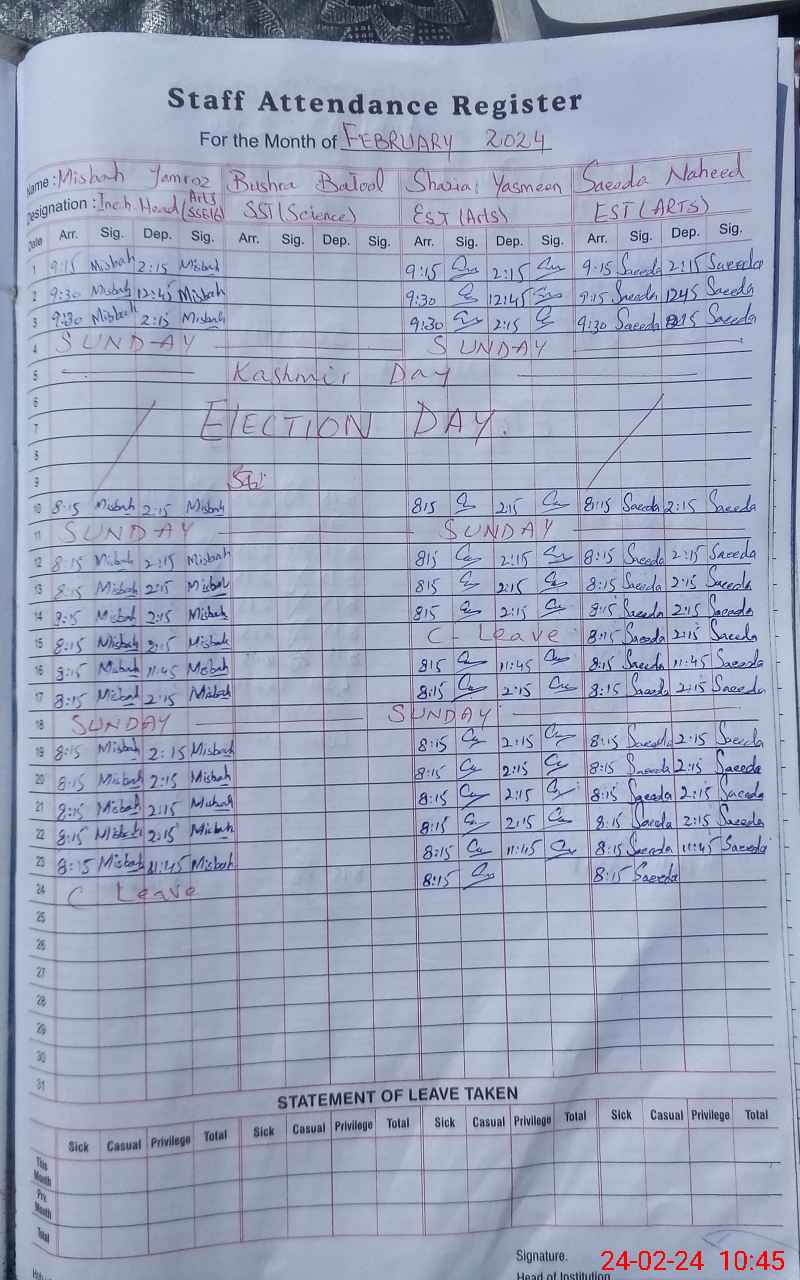 Staff Attendance Register
For the Month of FEBRUARY 2024
Name : Misbah Yamroz Bushra Batool Shazia Yasmeen Saeeda Naheed
Designation : Inch. Head (Arts SSE16) SST (Science) EST (Arts) EST (ARTS)
Date Arr. Sig. Dep. Sig. Arr. Sig. Dep. Sig. Arr. Sig. Dep. Sig. Arr. Sig. Dep. Sig.
1 9:15 Misbah 2:15 Misbah 9:15 2:15 9:15 Saeeda 2:15 Saeeda
2 9:30 Misbah 12:45 Misbah 9:30 12:45 9:15 Saeeda 1245 Saeeda
3 9:30 Misbah 2:15 Misbah 9:30 2:15 9:30 Saeeda 2:15 Saeeda
4 SUNDAY SUNDAY
5 Kashmir Day
6
7 ELECTION DAY.
8
9
10 8:15 Misbah 2:15 Misbah 815 2:15 8:15 Saeeda 2:15 Saeeda
11 SUNDAY SUNDAY
12 8:15 Misbah 2:15 Misbah 815 2:15 8:15 Saeeda 2:15 Saeeda
13 8:15 Misbah 2:15 Misbah 815 2:15 8:15 Saeeda 2:15 Saeeda
14 8:15 Misbah 2:15 Misbah 815 2:15 8:15 Saeeda 2:15 Saeeda
15 8:15 Misbah 2:15 Misbah C- Leave 8:15 Saeeda 2:15 Saeeda
16 8:15 Misbah 11:45 Misbah 815 11:45 8:15 Saeeda 11:45 Saeeda
17 8:15 Misbah 2:15 Misbah 8:15 2:15 8:15 Saeeda 2:15 Saeeda
18 SUNDAY SUNDAY
19 8:15 Misbah 2:15 Misbah 8:15 2:15 8:15 Saeeda 2:15 Saeeda
20 8:15 Misbah 2:15 Misbah 8:15 2:15 8:15 Saeeda 2:15 Saeeda
21 8:15 Misbah 2:15 Misbah 8:15 2:15 8:15 Saeeda 2:15 Saeeda
22 8:15 Misbah 2:15 Misbah 8:15 2:15 8:15 Saeeda 2:15 Saeeda
23 8:15 Misbah 11:45 Misbah 8:15 11:45 8:15 Saeeda 11:45 Saeeda
24 C Leave 8:15 8:15 Saeeda
25
26
27
28
29
30
31
STATEMENT OF LEAVE TAKEN
Sick Casual Privilege Total Sick Casual Privilege Total Sick Casual Privilege Total Sick Casual Privilege Total
This Month
Prv. Month
Total
Signature.
Head of Institution
24-02-24 10:45